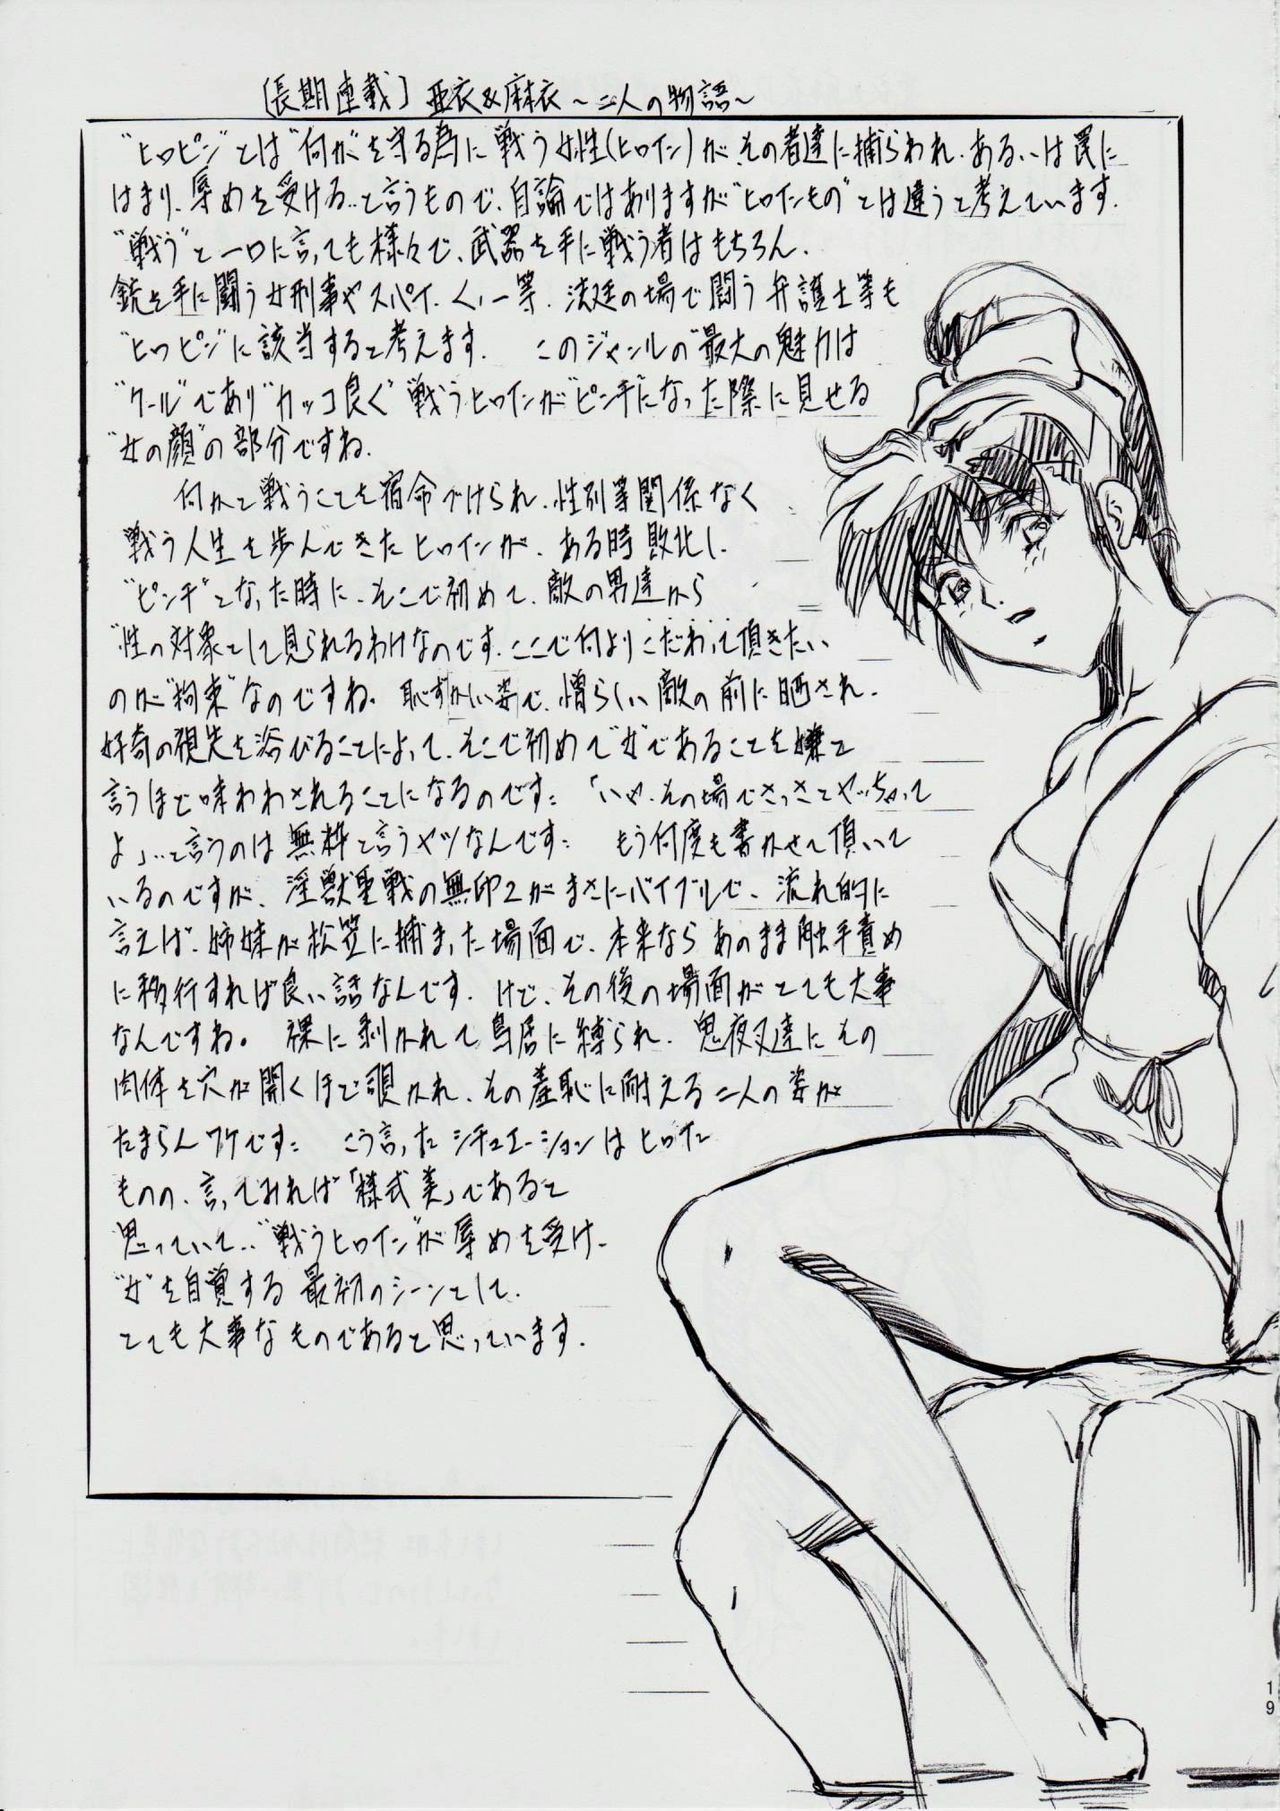 [長期連載] 亜衣&麻衣～二人の物語～
"ヒロピン"とは"何か"を守る為に戦う女性(ヒロイン)が、その者達に捕らわれ、あるいは罠に
はまり、辱めを受ける‥と言うもので、自論ではありますが"ヒロインもの"とは違うと考えています.
"戦う"と一口に言っても様々で、武器を手に戦う者はもちろん.
銃を手に闘う女刑事やスパイ、くノ一等、法廷の場で闘う弁護士等も
"ヒロピン"に該当すると考えます. このジャンルの"最大の魅力は
"クール"であり"カッコ良く"戦うヒロインが"ピンチ"になった際に見せる
"女の顔"の部分ですね.
何かと戦うことを宿命づけられ、性別等関係なく
戦う人生を歩んできたヒロインが、ある時敗北し.
"ピンチ"となった時に、そこで初めて、敵の男達から
"性の対象として見られるわけなのです.ここで何よりこだわって頂きたい
のが"拘束"なのですね。恥ずかしい姿で、憎らしい敵の前に晒され.
好奇の視先を浴びることによって、そこで初めて"女"であることを嫌と
言うほど味わわされることになるのです: 「いや、その場でさっさとヤッちゃって
よ」‥と言うのは無粋と言うヤツなんです: もう何度も書かせて頂いて
いるのですが、淫獣聖戦の無印2がまさにバイブルで、流れ的に
言えば、姉妹が松笠に捕まった場面で、本来なら あのまま触手責め
に移行すれば良い話なんです. けど、その後の場面がとても大事
なんですね。 裸に剥かれて鳥居に縛られ、鬼夜叉達にその
肉体を穴が開くほど覗かれ、その羞恥に耐える二人の姿が
たまらんワケです: こう言ったシチュエーションはヒロイン
ものの、言ってみれば「様式美」であると
思っていて‥"戦うヒロイン"が辱めを受け、
"女"を自覚する 最初のシーンとして、
とても大事なものであると思っています.
19